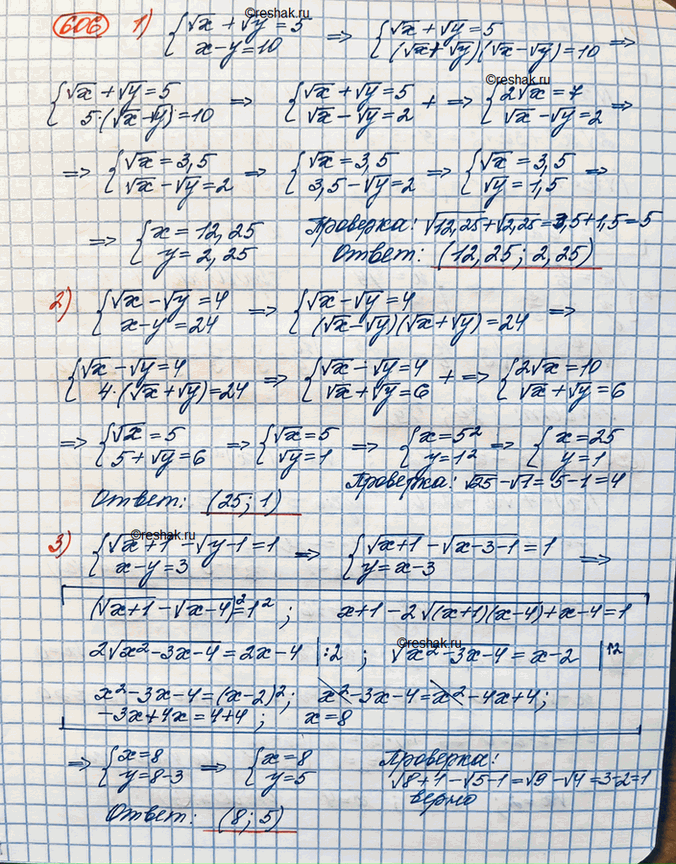 ©reshak.ru
606 1) {√x + √y = 5 ; x-y=10 ⇒ {√x + √y = 5 ; (√x+√y)(√x-√y)=10 ⇒
©reshak.ru
{√x + √y = 5 ; 5·(√x-√y)=10 ⇒ {√x + √y = 5 ; √x - √y = 2 + ⇒ {2√x = 7 ; √x - √y = 2 ⇒
⇒ {√x = 3,5 ; √x - √y = 2 ⇒ {√x = 3,5 ; 3,5 - √y = 2 ⇒ {√x = 3,5 ; √y = 1,5 ⇒
⇒ {x = 12,25 ; y = 2,25 Проверка: √12,25+√2,25 = 3,5+1,5 = 5
Ответ: (12,25; 2,25)
2) {√x - √y = 4 ; x-y = 24 ⇒ {√x - √y = 4 ; (√x-√y)(√x+√y) = 24 ⇒
{√x - √y = 4 ; 4·(√x+√y)=24 ⇒ {√x - √y = 4 ; √x + √y = 6 + ⇒ {2√x = 10 ; √x + √y = 6
⇒ {√x = 5 ; 5+√y = 6 ⇒ {√x = 5 ; √y = 1 ⇒ {x = 5² ; y = 1² ⇒ {x = 25 ; y = 1
Проверка: √25 - √1 = 5-1 = 4
Ответ: (25; 1)
©reshak.ru
3) {√x+1 - √y-1 = 1 ; x-y = 3 ⇒ {√x+1 - √x-3-1 = 1 ; y = x-3 ⇒
(√x+1 - √x-4)² = 1² ; x+1 - 2√(x+1)(x-4) + x-4 = 1
©reshak.ru
2√x²-3x-4 = 2x-4 |:2 ; √x²-3x-4 = x-2 |↑2
x²-3x-4 = (x-2)² ; x²-3x-4 = x²-4x+4 ;
-3x+4x = 4+4 ; x = 8
⇒ {x = 8 ; y = 8-3 ⇒ {x = 8 ; y = 5 Проверка:
√8+1 - √5-1 = √9 - √4 = 3-2 = 1
верно
Ответ: (8; 5)